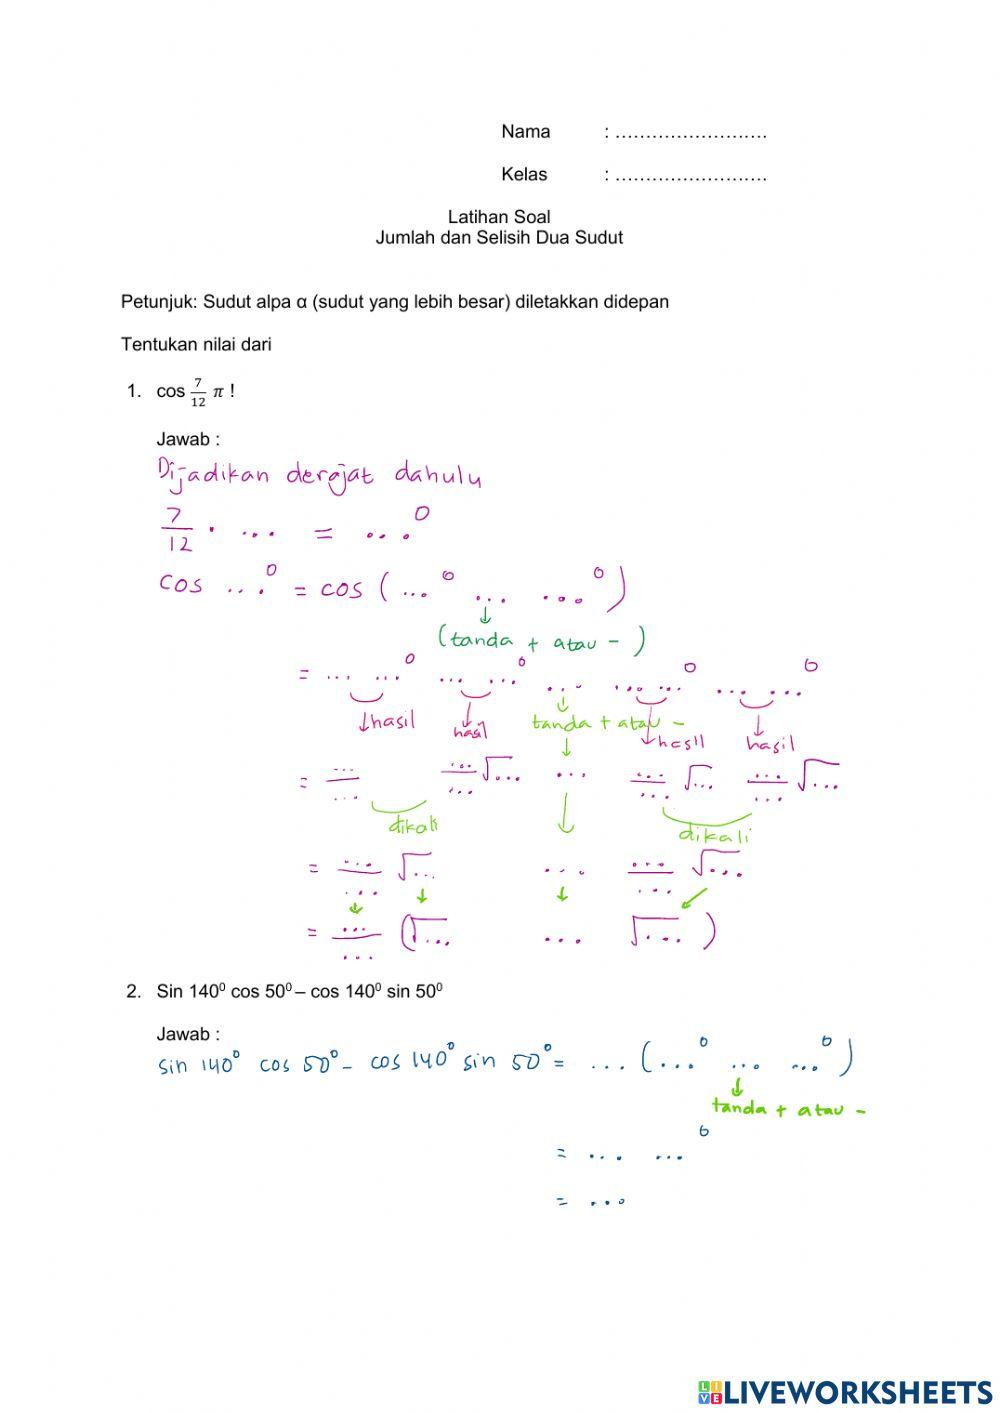 Nama : ............................
Kelas : ............................
Latihan Soal
Jumlah dan Selisih Dua Sudut
Petunjuk: Sudut alpa α (sudut yang lebih besar) diletakkan didepan
Tentukan nilai dari
1. cos 7/12 π !
Jawab :
Dijadikan derajat dahulu
7/12 · ... = ...⁰
cos ...⁰ = cos (...⁰ ... ...⁰)
(tanda + atau -)
= ... ...⁰ ... ...⁰ ... ... ...⁰ ... ...⁰
hasil hasil tanda + atau - hasil hasil
= .../... .../...√... ... .../... √... .../... √...
dikali dikali
= .../... √... ... .../... √...
= .../... (√... ... √...)
2. Sin 140⁰ cos 50⁰ – cos 140⁰ sin 50⁰
Jawab :
sin 140⁰ cos 50⁰ - cos 140⁰ sin 50⁰ = ... (...⁰ ... ...⁰)
tanda + atau -
= ... ...⁰
= ...
LIVEWORKSHEETS